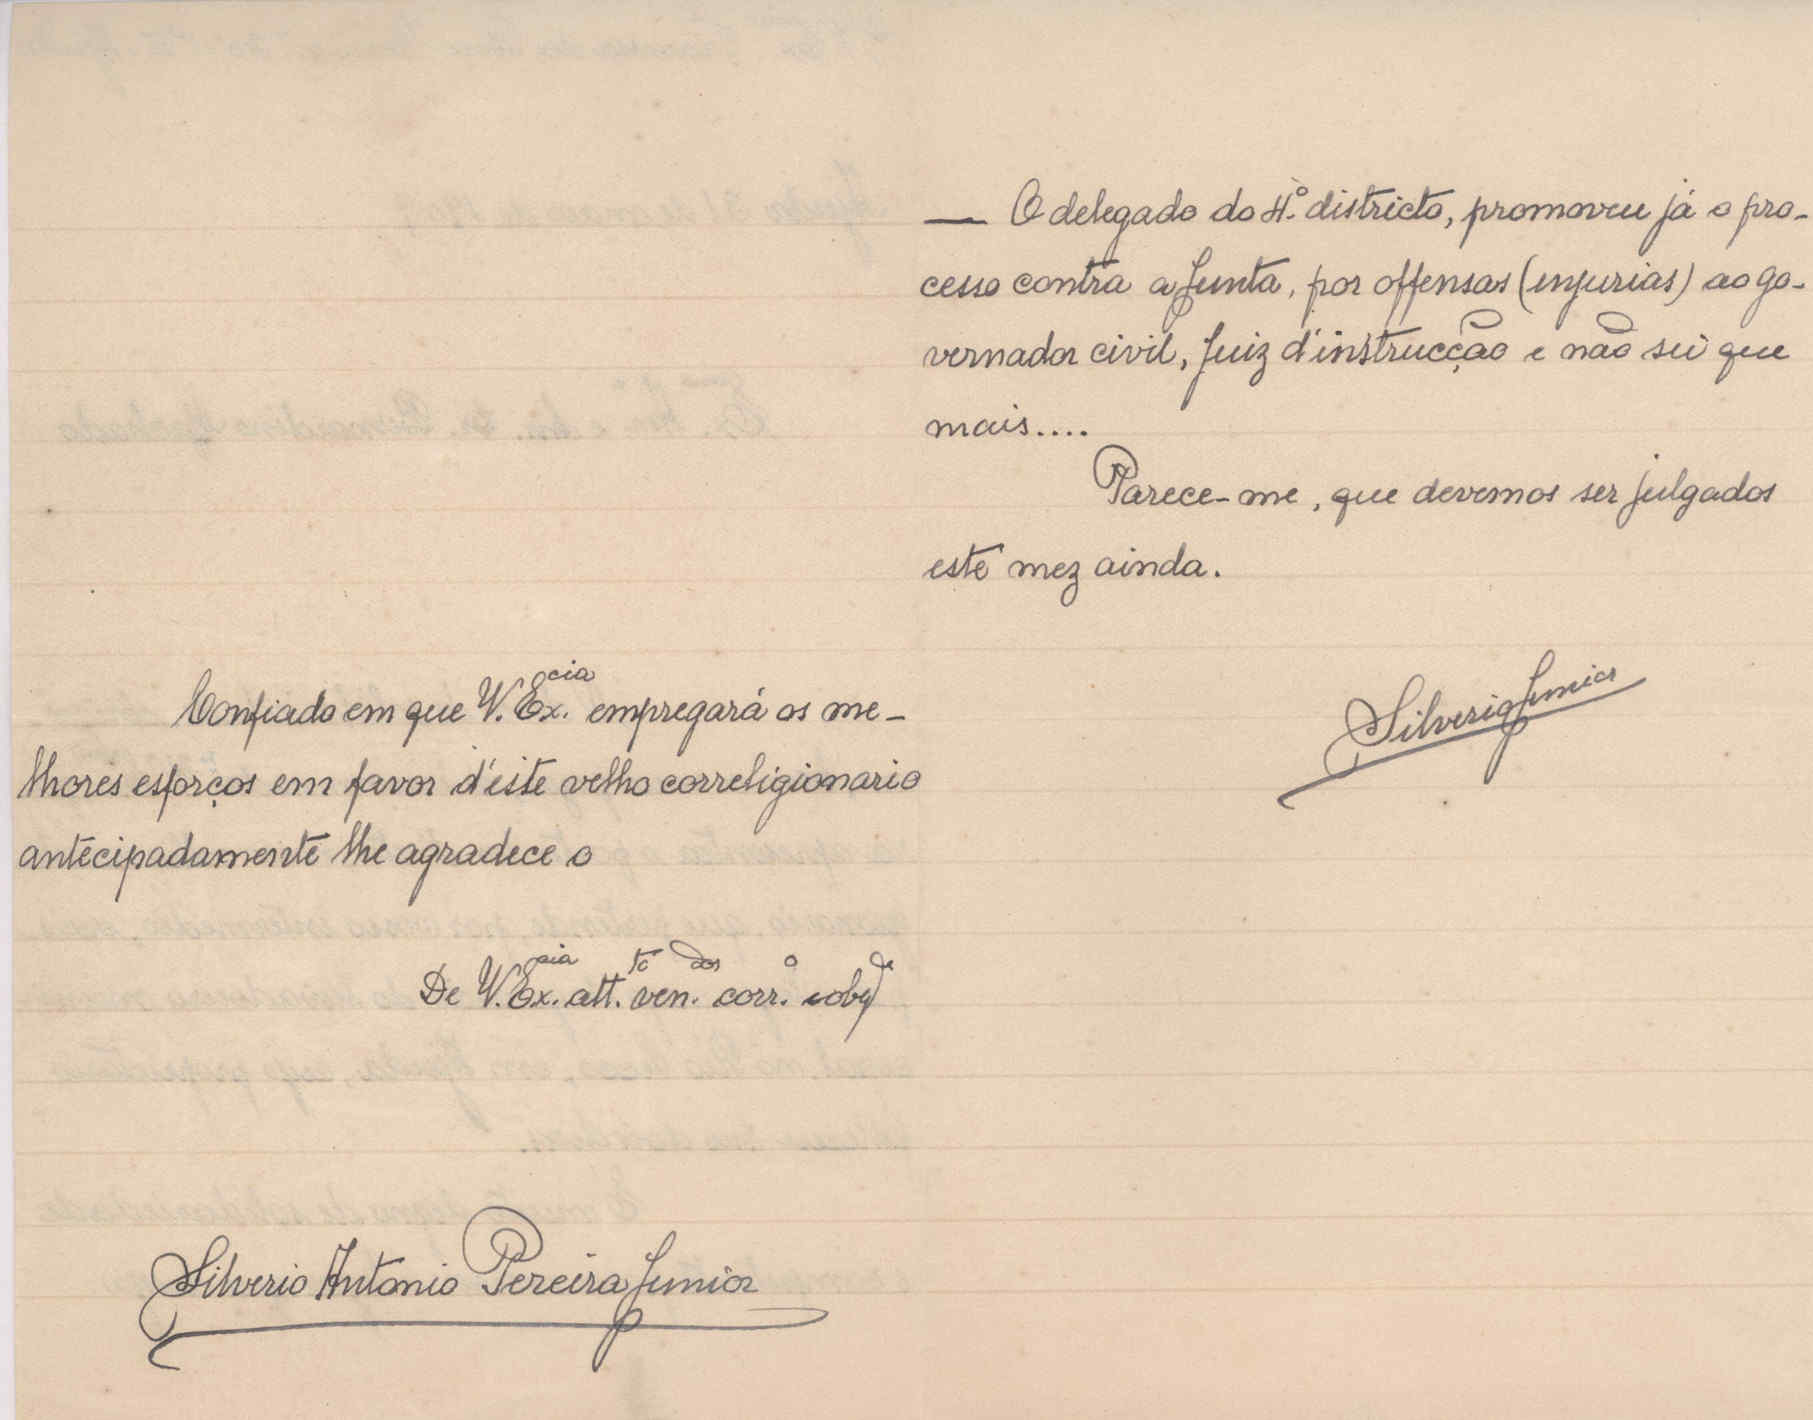 Confiado em que V. Ex.cia empregará os me-
lhores esforços em favor d'este velho correligionario
antecipadamente lhe agradece o
De V. Ex.cia att.to ven.dor corr.o e obg.do
Silverio Antonio Pereira Junior
— O delegado do 4.º districto, promoveu já o pro-
cesso contra a Junta, por offensas (injurias) ao go-
vernador civil, Juiz d'instrucção e não sei que
mais....
Parece-me, que devemos ser julgados
este mez ainda.
Silverio Junior